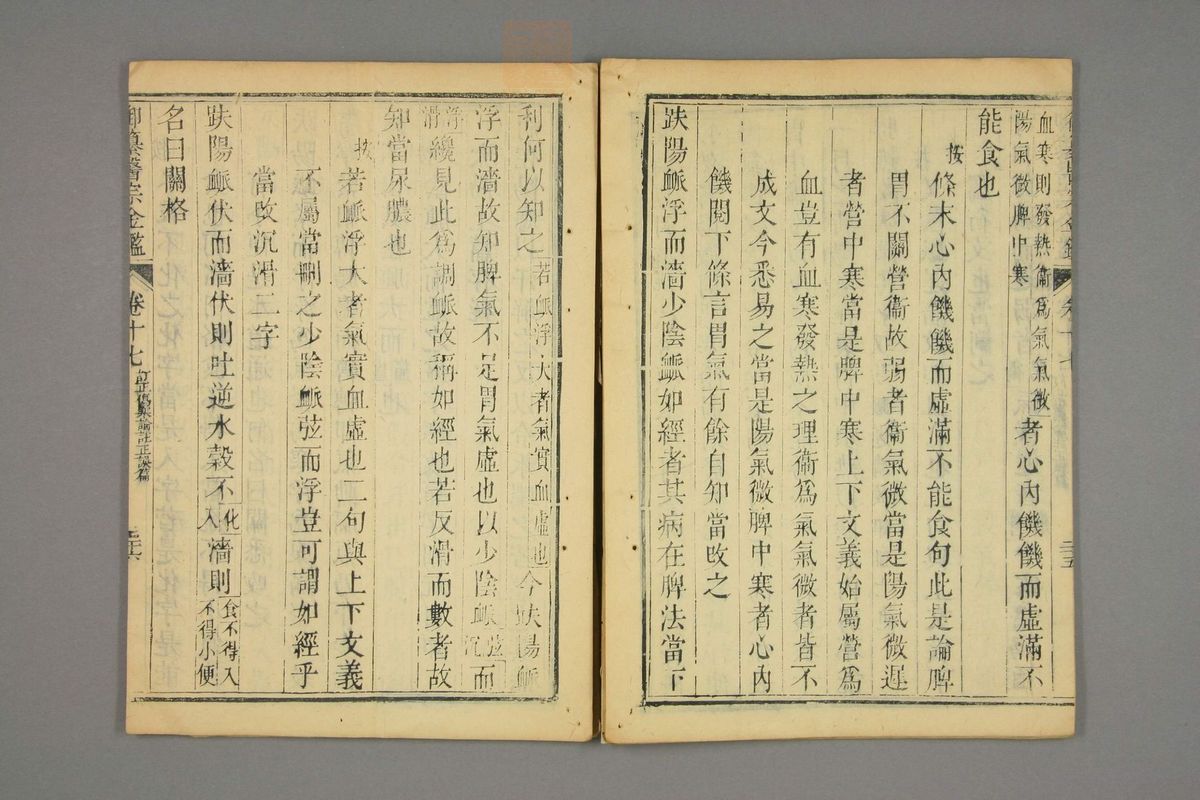 血寒則發熱衞爲氣氣微
陽氣微脾中寒
者心內饑饑而虛滿不
能食也
按條末心內饑饑而虛滿不能食句此是論脾
胃不關營衞故弱者衞氣微當是陽氣微遲
者營中寒當是脾中寒上下文義始屬營爲
血豈有血寒發熱之理衞爲氣氣微者皆不
成文今悉易之當是陽氣微脾中寒者心內
饑閱下條言胃氣有餘自知當攺之
趺陽脈浮而濇少陰脈如經者其病在脾法當下
利何以知之若脈浮大者氣實血虛也今趺陽脈
浮而濇故知脾氣不足胃氣虛也以少陰脈弦沉而
浮滑纔見此爲調脈故稱如經也若反滑而數者故
知當尿膿也
按若脈浮大者氣實血虛也二句與上下文義
不屬當刪之少陰脈弦而浮豈可謂如經乎
當攺沉滑二字
趺陽脈伏而濇伏則吐逆水穀不化入濇則食不得入不得小便
名曰關格
御纂醫宗金鑑 卷十七 訂正傷寒論註正誤篇